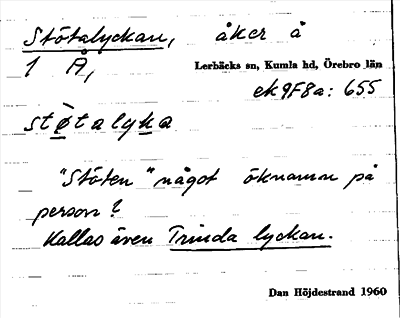 Stötalyckan, åker å
1 Å,
Lerbäcks sn, Kumla hd, Örebro län
ek 9F8a: 655
stø̀talyka
"Stöten" något öknamn på
person?
Kallas även Trinda lyckan.
Dan Höjdestrand 1960